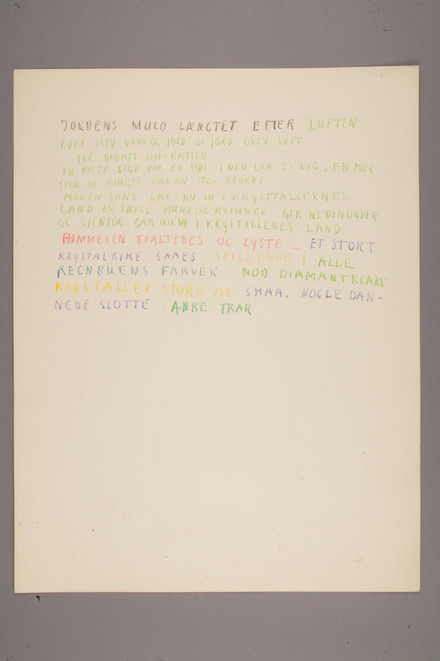 JORDENS MULD LÆNGTET EFTER LUFTEN
LUFT BLEV VAND OG JORD OG JORD BLEV LUFT
JEG DRØMTE OM NATTEN:
EN KISTE STOD PAA EN HØI I DEN LAA ET LIG. EN MOR
STOD OG RINGTE PAA EN STOR KLOKKE
MOREN SANG GAK NU IN I KRYSTTALLERNES
LAND. EN RÆKE MÆND OG KVINNER GIK NEDENUNDER
OG GJENTOK: GAK NU IN I KRYSTALLENES LAND
HIMMELEN SPALTEDES OG LYSTE _ ET STORT
KRYSTALRIKE SAAES SPILLENDE I ALLE
REGNBUENS FARVER MOD DIAMANTKLARE
KRYSTALLER STORE OG SMAA. NOGLE DAN-
NEDE SLOTTE ANRE TRÆR